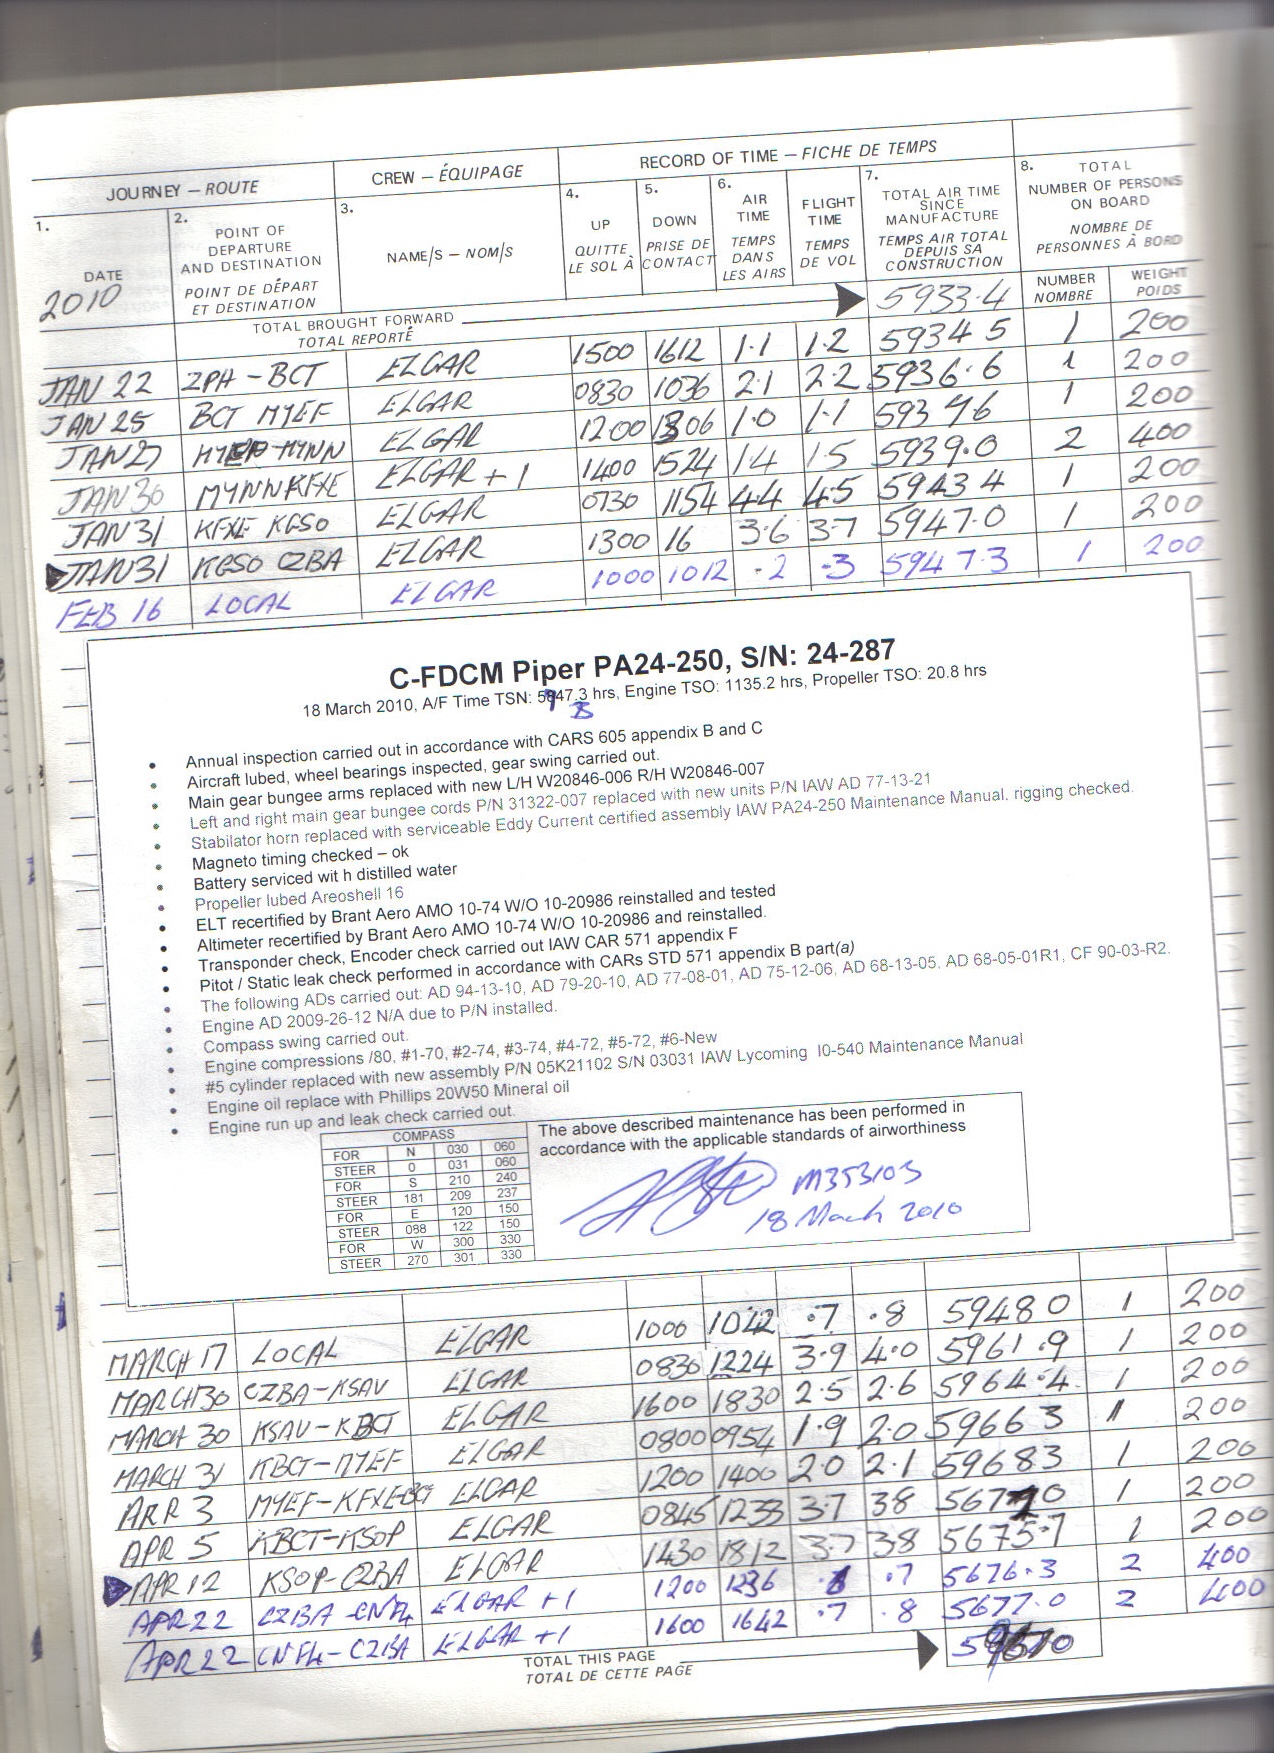 JOURNEY – ROUTE CREW – ÉQUIPAGE RECORD OF TIME – FICHE DE TEMPS
1. DATE 2010
2. POINT OF DEPARTURE AND DESTINATION
POINT DE DÉPART ET DESTINATION
3. NAME/S – NOM/S
4. UP QUITTE LE SOL À
5. DOWN PRISE DE CONTACT
6. AIR TIME TEMPS DANS LES AIRS
FLIGHT TIME TEMPS DE VOL
7. TOTAL AIR TIME SINCE MANUFACTURE
TEMPS AIR TOTAL DEPUIS SA CONSTRUCTION
8. TOTAL NUMBER OF PERSONS ON BOARD
NOMBRE DE PERSONNES À BORD
NUMBER NOMBRE WEIGHT POIDS
TOTAL BROUGHT FORWARD 5933.4
TOTAL REPORTÉ
JAN 22 ZPH – BCT ELGAR 1500 1612 1.1 1.2 5934 5 1 200
JAN 25 BCT MYEF ELGAR 0830 1036 2.1 2.2 5936.6 1 200
JAN 27 MYEF-MYNN ELGAR 1200 1306 1.0 1.1 5937 6 1 200
JAN 30 MYNN KFXE ELGAR + 1 1400 1524 1.4 1.5 5939.0 2 400
JAN 31 KFXE KGSO ELGAR 0730 1154 4.4 4.5 5943 4 1 200
JAN 31 KGSO CZBA ELGAR 1300 16 3.6 3.7 5947.0 1 200
FEB 16 LOCAL ELGAR 1000 1012 .2 .3 5947.3 1 200
C-FDCM Piper PA24-250, S/N: 24-287
18 March 2010, A/F Time TSN: 5947.3 hrs, Engine TSO: 1135.2 hrs, Propeller TSO: 20.8 hrs
• Annual inspection carried out in accordance with CARS 605 appendix B and C
• Aircraft lubed, wheel bearings inspected, gear swing carried out.
• Main gear bungee arms replaced with new L/H W20846-006 R/H W20846-007
• Left and right main gear bungee cords P/N 31322-007 replaced with new units P/N IAW AD 77-13-21
• Stabilator horn replaced with serviceable Eddy Current certified assembly IAW PA24-250 Maintenance Manual, rigging checked.
• Magneto timing checked – ok
• Battery serviced wit h distilled water
• Propeller lubed Areoshell 16
• ELT recertified by Brant Aero AMO 10-74 W/O 10-20986 reinstalled and tested
• Altimeter recertified by Brant Aero AMO 10-74 W/O 10-20986 and reinstalled.
• Transponder check, Encoder check carried out IAW CAR 571 appendix F
• Pitot / Static leak check performed in accordance with CARs STD 571 appendix B part(a)
• The following ADs carried out: AD 94-13-10, AD 79-20-10, AD 77-08-01, AD 75-12-06, AD 68-13-05, AD 68-05-01R1, CF 90-03-R2.
• Engine AD 2009-26-12 N/A due to P/N installed.
• Compass swing carried out.
• Engine compressions /80, #1-70, #2-74, #3-74, #4-72, #5-72, #6-New
• #5 cylinder replaced with new assembly P/N 05K21102 S/N 03031 IAW Lycoming I0-540 Maintenance Manual
• Engine oil replace with Phillips 20W50 Mineral oil
• Engine run up and leak check carried out.
COMPASS
FOR N 030 060
STEER 0 031 060
FOR S 210 240
STEER 181 209 237
FOR E 120 150
STEER 088 122 150
FOR W 300 330
STEER 270 301 330
The above described maintenance has been performed in
accordance with the applicable standards of airworthiness
M353103
18 March 2010
MARCH 17 LOCAL ELGAR 1000 1042 .7 .8 5948 0 1 200
MARCH 30 CZBA – KSAV ELGAR 0830 1224 3.9 4.0 5961.9 1 200
MARCH 30 KSAV – KBCT ELGAR 1600 1830 2.5 2.6 5964.4 1 200
MARCH 31 KBCT – MYEF ELGAR 0800 0954 1.9 2.0 5966 3 1 200
APR 3 MYEF – KFXE-BCT ELGAR 1200 1400 2.0 2.1 5968 3 1 200
APR 5 KBCT – KSOP ELGAR 0845 1233 3.7 38 567 0 1 200
APR 12 KSOP – CZBA ELGAR 1430 1812 3.7 38 5675.7 1 200
APR 22 CZBA – CNF4 ELGAR +1 1200 1236 .7 5676.3 2 400
APR 22 CNF4 – CZBA ELGAR +1 1600 1642 .7 .8 5677.0 2 400
TOTAL THIS PAGE
TOTAL DE CETTE PAGE